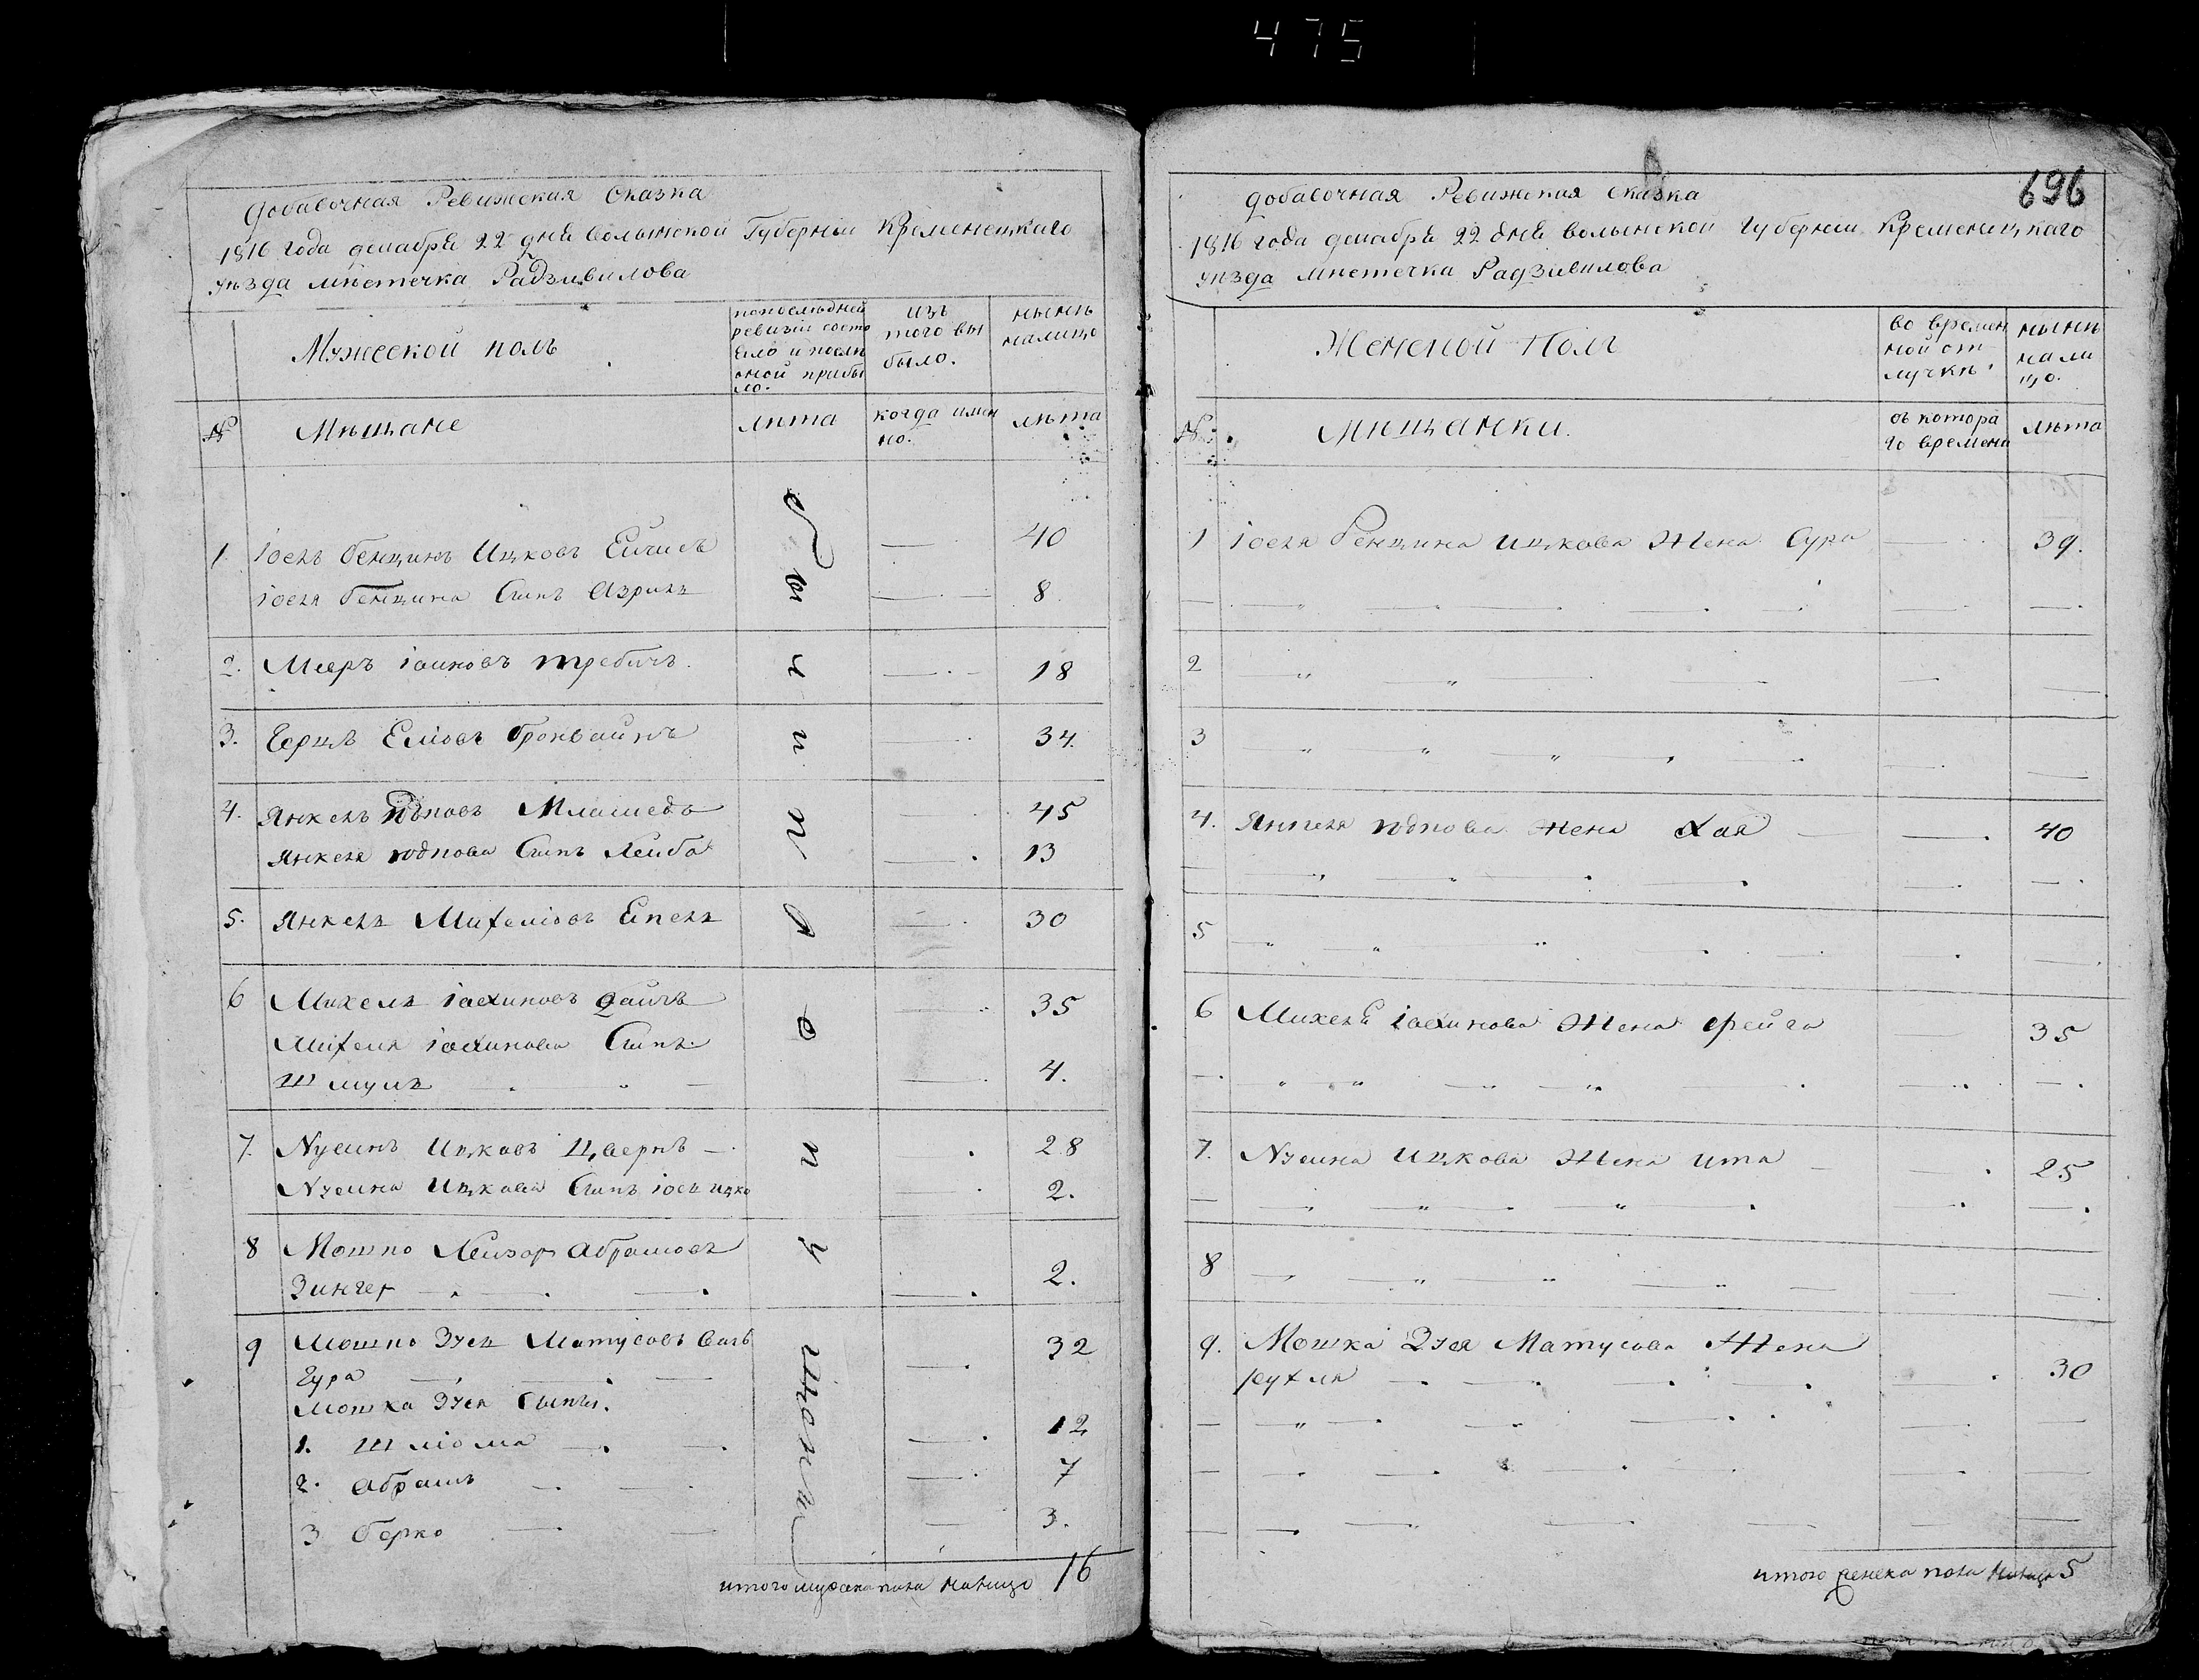 475
добавочная Ревижская Сказка
1816 года декабря 22 дня волынской Губернiи Кременецкаго
уѣзда мѣстечка Радзивилова
Мужеской полъ
по последней
ревизiи состо
яло и после
оной прибы
ло.
изъ
того вы
было.
нынѣ
налицо
№
Мѣщане
лѣта
когда имен
но.
лѣта
1. iоель бенцинъ Ицковъ 40
iоеля бенцина Сынъ Азриль 8
2. Меер iоиновъ требичъ 18
3. Герцъ Елiовъ бронвайнъ 34.
4. Янкель Юдковъ 45
Янкеля юдкова Сынъ Лейба 13
5. Янкель Михелiовъ 30
6 Михель iохиновъ дайчъ 35
Михеля iохинова Сынъ
Шмуль 4.
7. Нусинъ Ицковъ Цвернъ 28
Нусина Ицкова Сынъ iось ицко 2.
8 Мошко Лейзор Абрамовъ
Зингер 2.
9 Мошко Зусь Матусовъ 32
Мошка Зуся Сыны.
1. Шлiома 12
2. абрамъ 7
3 берко 3.
итого мужска пола налицо 16
696
добавочная Ревижская сказка
1816 года декабря 22 дня волынской губернiи Кременецкаго
уѣзда мѣстечка Радзивилова
Женской Полъ
во времен
ной от
лучкѣ
нынѣ
нали
цо.
№
Мѣщанки.
съ котора
го времени
лѣта
1 iоеля бенцина ицкова Жена Сура 39.
2
3
4. Янкеля юдкова жена Хая 40
5
6 Михеля iохинова Жена фейга 35
7. Нусина Ицкова Жена ита 25
8
9. Мошка Зуся Матусова Жена
рухля 30
итого женска пола налицо 5